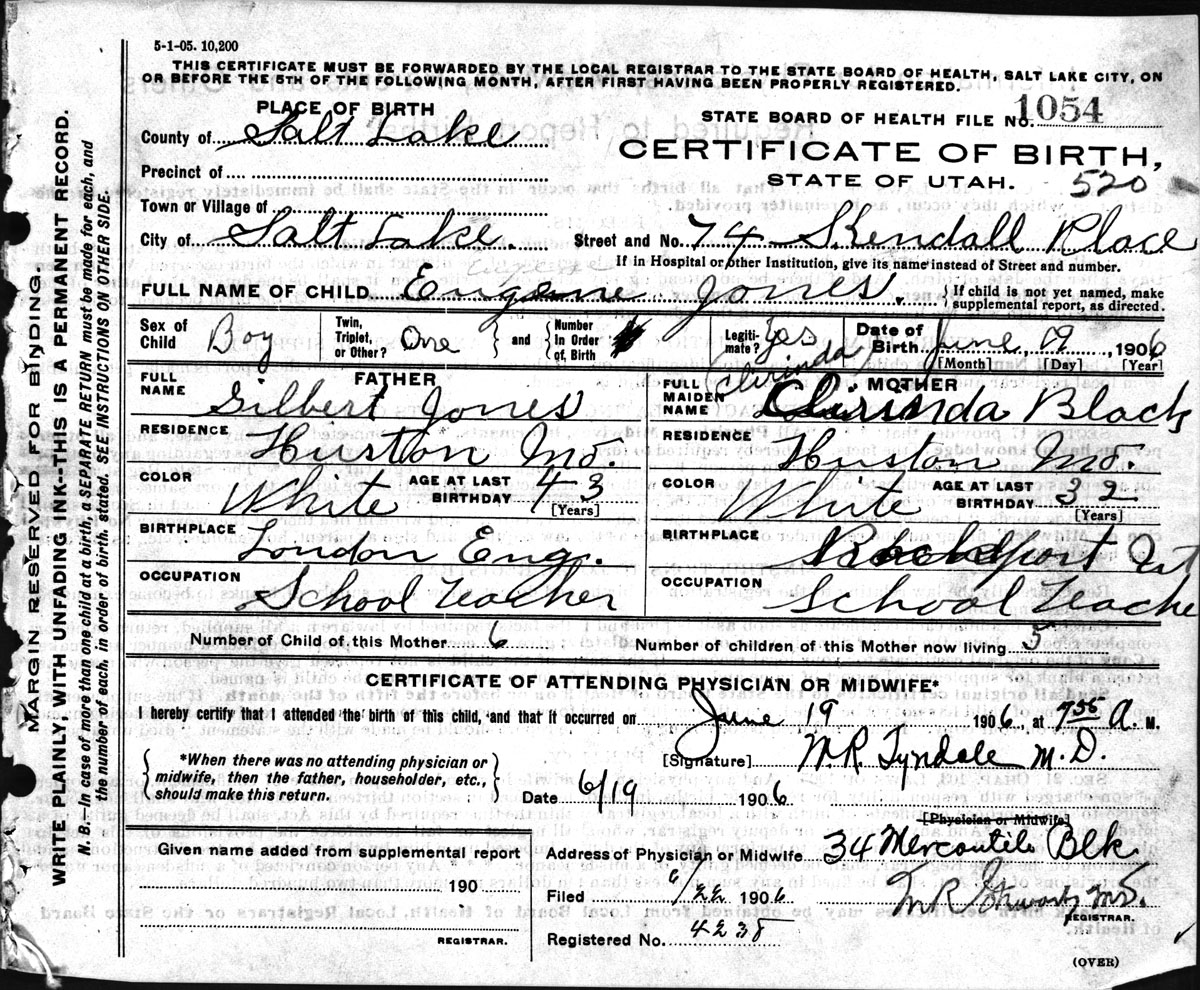 5-1-05. 10,200
THIS CERTIFICATE MUST BE FORWARDED BY THE LOCAL REGISTRAR TO THE STATE BOARD OF HEALTH, SALT LAKE CITY, ON
OR BEFORE THE 5TH OF THE FOLLOWING MONTH, AFTER FIRST HAVING BEEN PROPERLY REGISTERED.
PLACE OF BIRTH
STATE BOARD OF HEALTH FILE NO. 1054
County of Salt Lake
CERTIFICATE OF BIRTH,
Precinct of
STATE OF UTAH. 520
Town or Village of
City of Salt Lake Street and No. 74 Kendall Place
If in Hospital or other Institution, give its name instead of Street and number.
FULL NAME OF CHILD Eugene Jones. { If child is not yet named, make supplemental report, as directed.
Sex of Child Boy Twin, Triplet, or Other? One } and { Number In Order of, Birth Legiti-mate? Yes Date of Birth June 19, 1906
[Month] [Day] [Year]
FATHER
FULL NAME Gilbert Jones
RESIDENCE Huston Mo.
COLOR White AGE AT LAST BIRTHDAY 43 [Years]
BIRTHPLACE London Eng.
OCCUPATION School Teacher
MOTHER
Clirinda
FULL MAIDEN NAME Clirinda Black
RESIDENCE Huston Mo.
COLOR White AGE AT LAST BIRTHDAY 32 [Years]
BIRTHPLACE Rockport
OCCUPATION School Teache
Number of Child of this Mother 6 Number of children of this Mother now living 5
CERTIFICATE OF ATTENDING PHYSICIAN OR MIDWIFE*
I hereby certify that I attended the birth of this child, and that it occurred on June 19 1906 at 7 55 A. M.
{ *When there was no attending physician or midwife, then the father, householder, etc., should make this return. }
[Signature] M.R. Tyndale M.D.
Date 6/19 1906
[Physician or Midwife]
Given name added from supplemental report
190
REGISTRAR.
Address of Physician or Midwife 34 Mercantile Blk
Filed 6/22 1906 M R Stewart MD.
REGISTRAR.
Registered No. 4238
(OVER)
MARGIN RESERVED FOR BINDING.
WRITE PLAINLY, WITH UNFADING INK--THIS IS A PERMANENT RECORD.
N. B. In case of more than one child at a birth, a SEPARATE RETURN must be made for each, and
the number of each, in order of birth, stated. SEE INSTRUCTIONS ON OTHER SIDE.